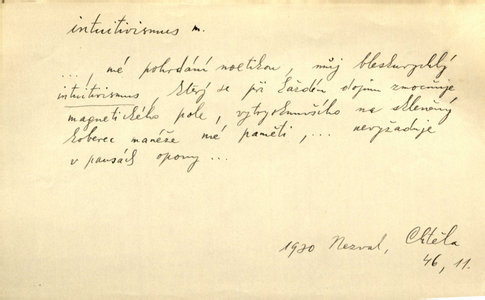 intuitivismus m.
..., mé pohrdání noetikou, můj bleskurychlý
intuitivismus, který se při každém dojmu zmocňuje
magnetického pole, vytrysknuvšího na skleněný
koberec manéže mé paměti, ... nevyžaduje
v pausách opony ...
1930 Nezval, Chtěla
46, 11.